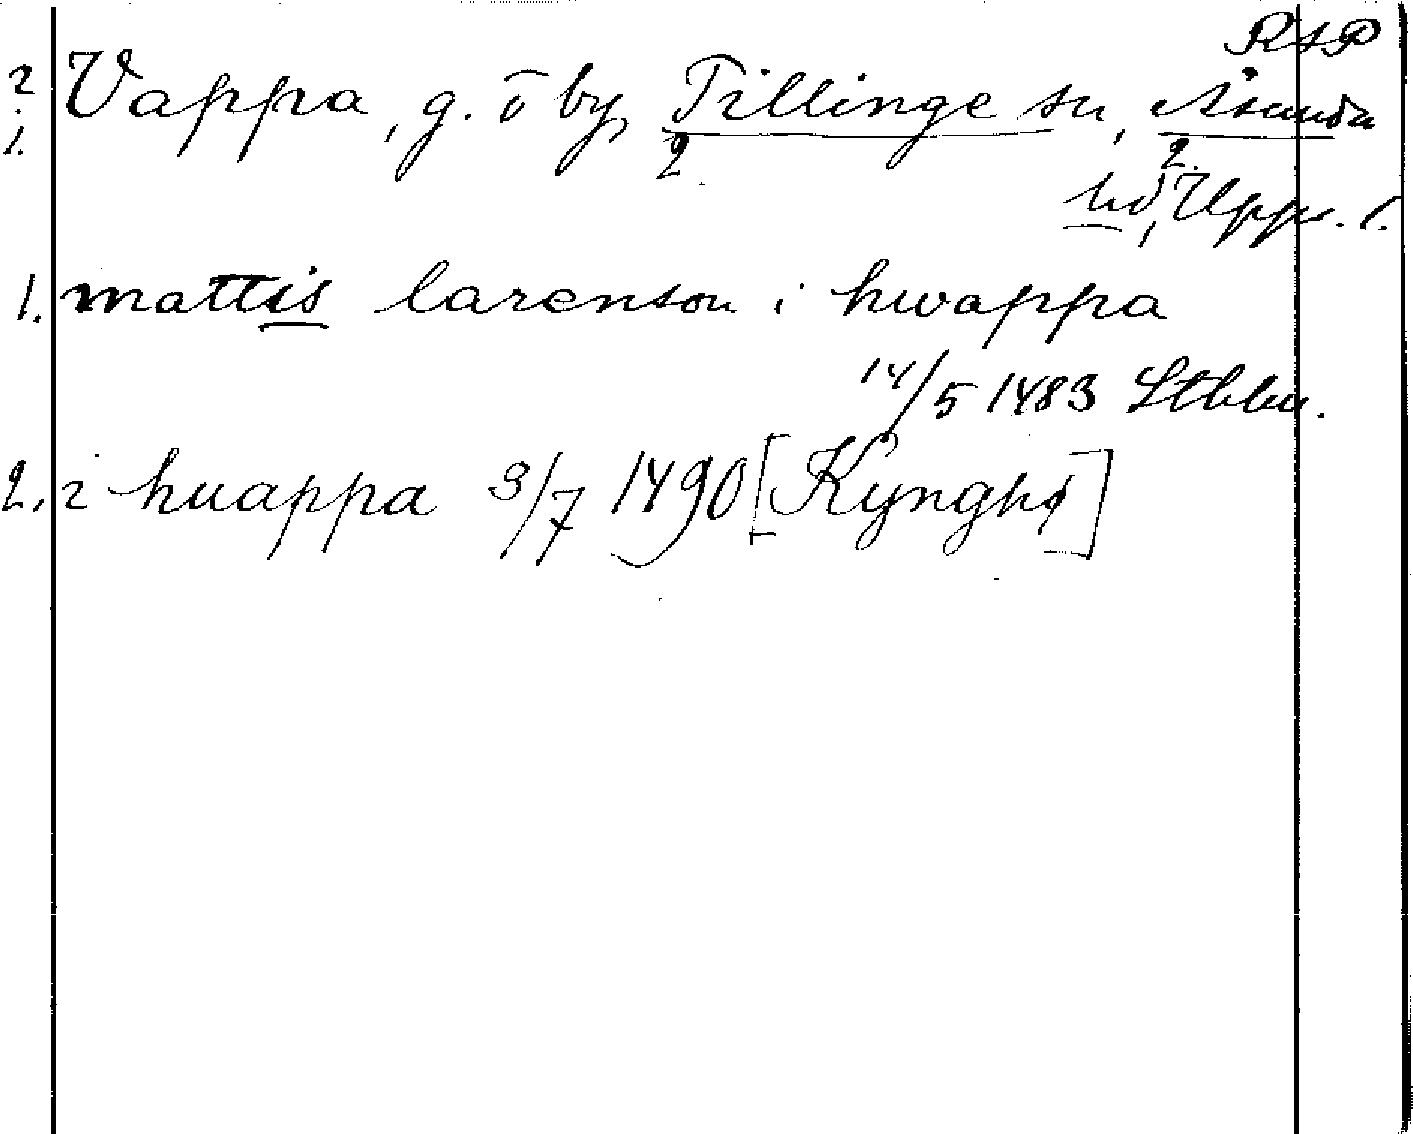 RAP
2 Vappa, g. o by, Tillinge sn, Åsunda
1. 2 2.
hd, Upps. l.
1. mattis larenson i hwappa
14/5 1483 Stbbu.
2. i huappa 3/7 1490 [Kynghø]